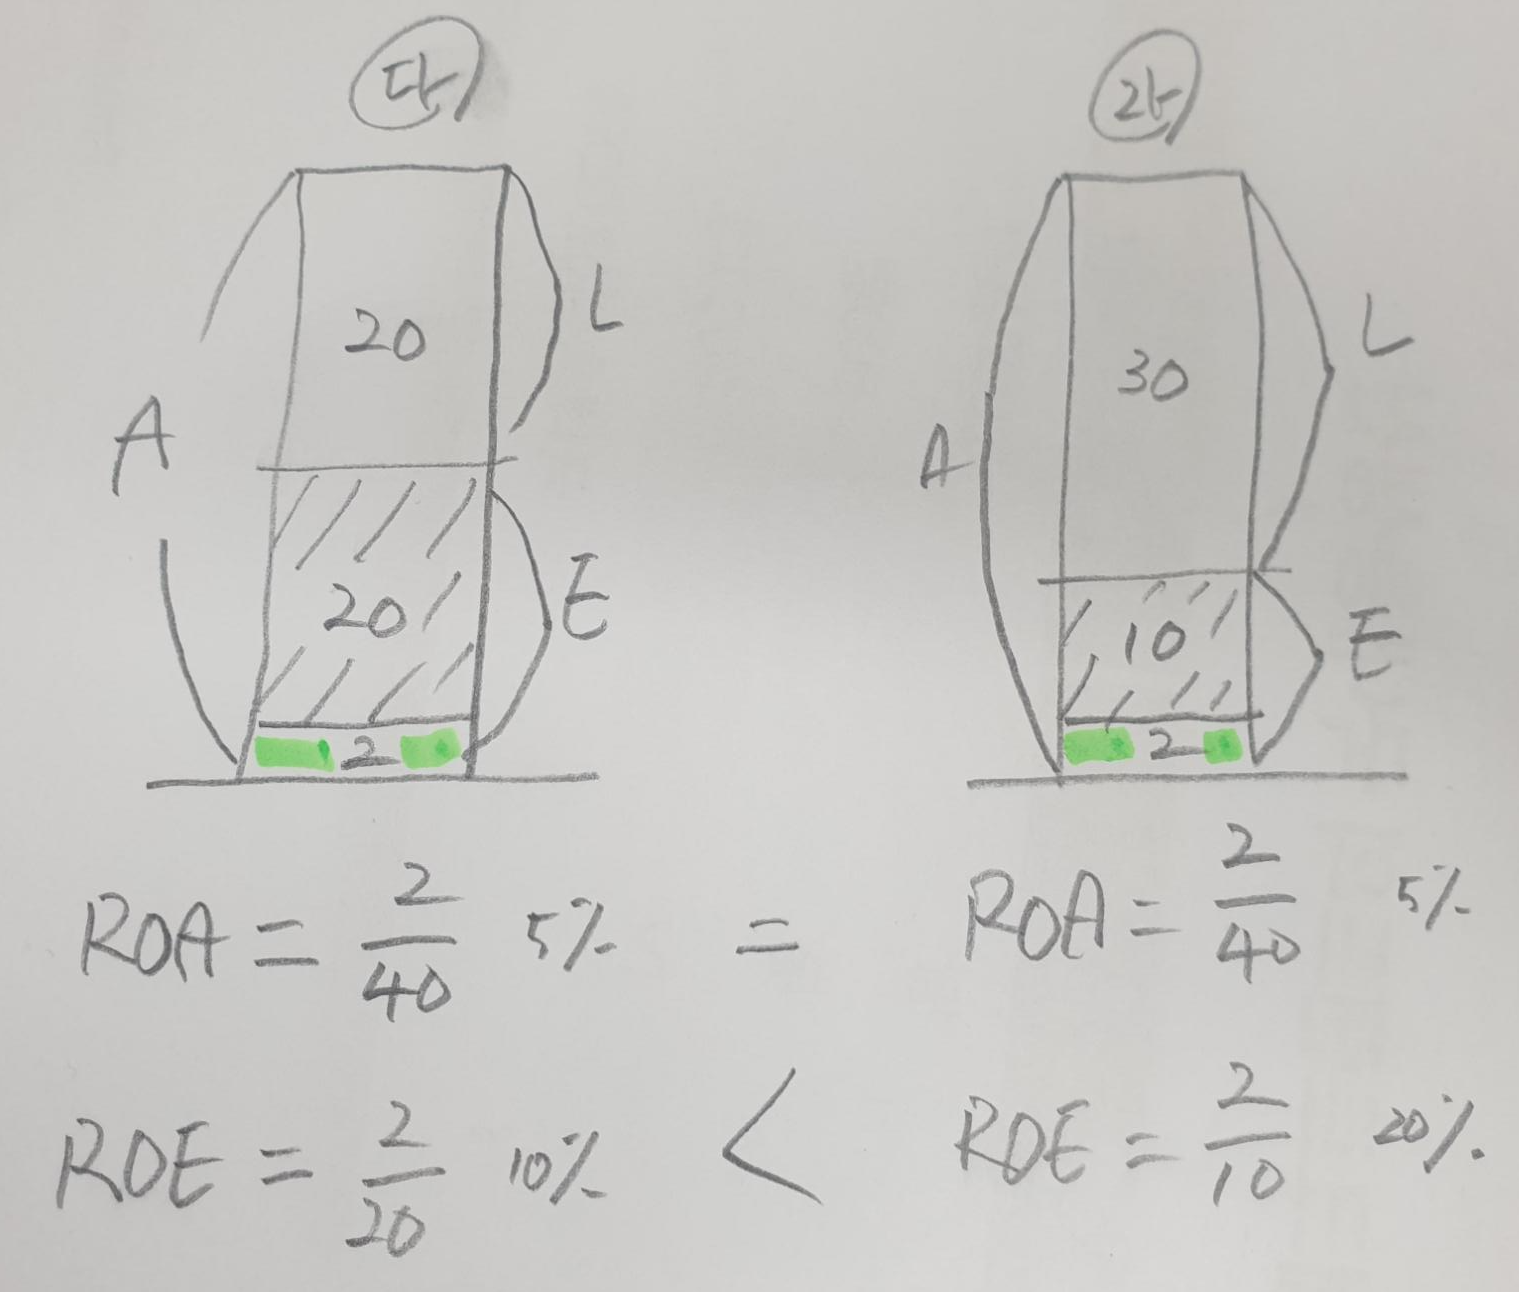 다 라
20 L
30 L
A
A
20 E
10 E
2
2
ROA = 2/40 5% = ROA = 2/40 5%
ROE = 2/20 10% < ROE = 2/10 20%